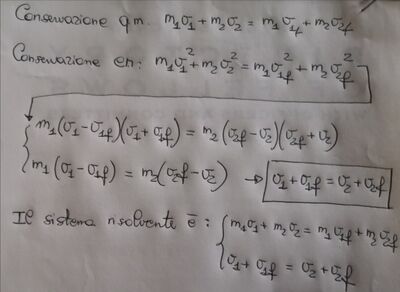 Conservazione qm. m₁σ₁ + m₂σ₂ = m₁σ₁f + m₂σ₂f
Conservazione en: m₁σ₁² + m₂σ₂² = m₁σ₁f² + m₂σ₂f²
m₁(σ₁ - σ₁f)(σ₁ + σ₁f) = m₂(σ₂f - σ₂)(σ₂f + σ₂)
m₁(σ₁ - σ₁f) = m₂(σ₂f - σ₂) → σ₁ + σ₁f = σ₂ + σ₂f
Il sistema risolvente è: m₁σ₁ + m₂σ₂ = m₁σ₁f + m₂σ₂f
σ₁ + σ₁f = σ₂ + σ₂f